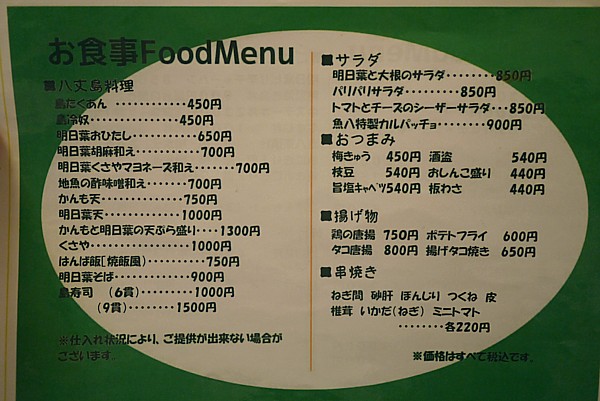 お食事FoodMenu
■八丈島料理
島たくあん ············450円
島冷奴···············450円
明日葉おひたし···········650円
明日葉胡麻和え···········700円
明日葉くさやマヨネーズ和え·······700円
地魚の酢味噌和え·······700円
かんも天··············750円
明日葉天·············1000円
かんもと明日葉の天ぷら盛り····1300円
くさや················1000円
はんば飯[焼飯風]··········750円
明日葉そば············900円
島寿司 (6貫)·········1000円
(9貫)········1500円
※仕入れ状況により、ご提供が出来ない場合が
ございます。
■サラダ
明日葉と大根のサラダ········850円
パリパリサラダ·········850円
トマトとチーズのシーザーサラダ···850円
魚八特製カルパッチョ········900円
■おつまみ
梅きゅう 450円 酒盗 540円
枝豆 540円 おしんこ盛り 440円
旨塩キャベツ540円 板わさ 440円
■揚げ物
鶏の唐揚 750円 ポテトフライ 600円
タコ唐揚 800円 揚げタコ焼き 650円
■串焼き
ねぎ間 砂肝 ぼんじり つくね 皮
椎茸 いかだ(ねぎ) ミニトマト
········各220円
※価格はすべて税込です。